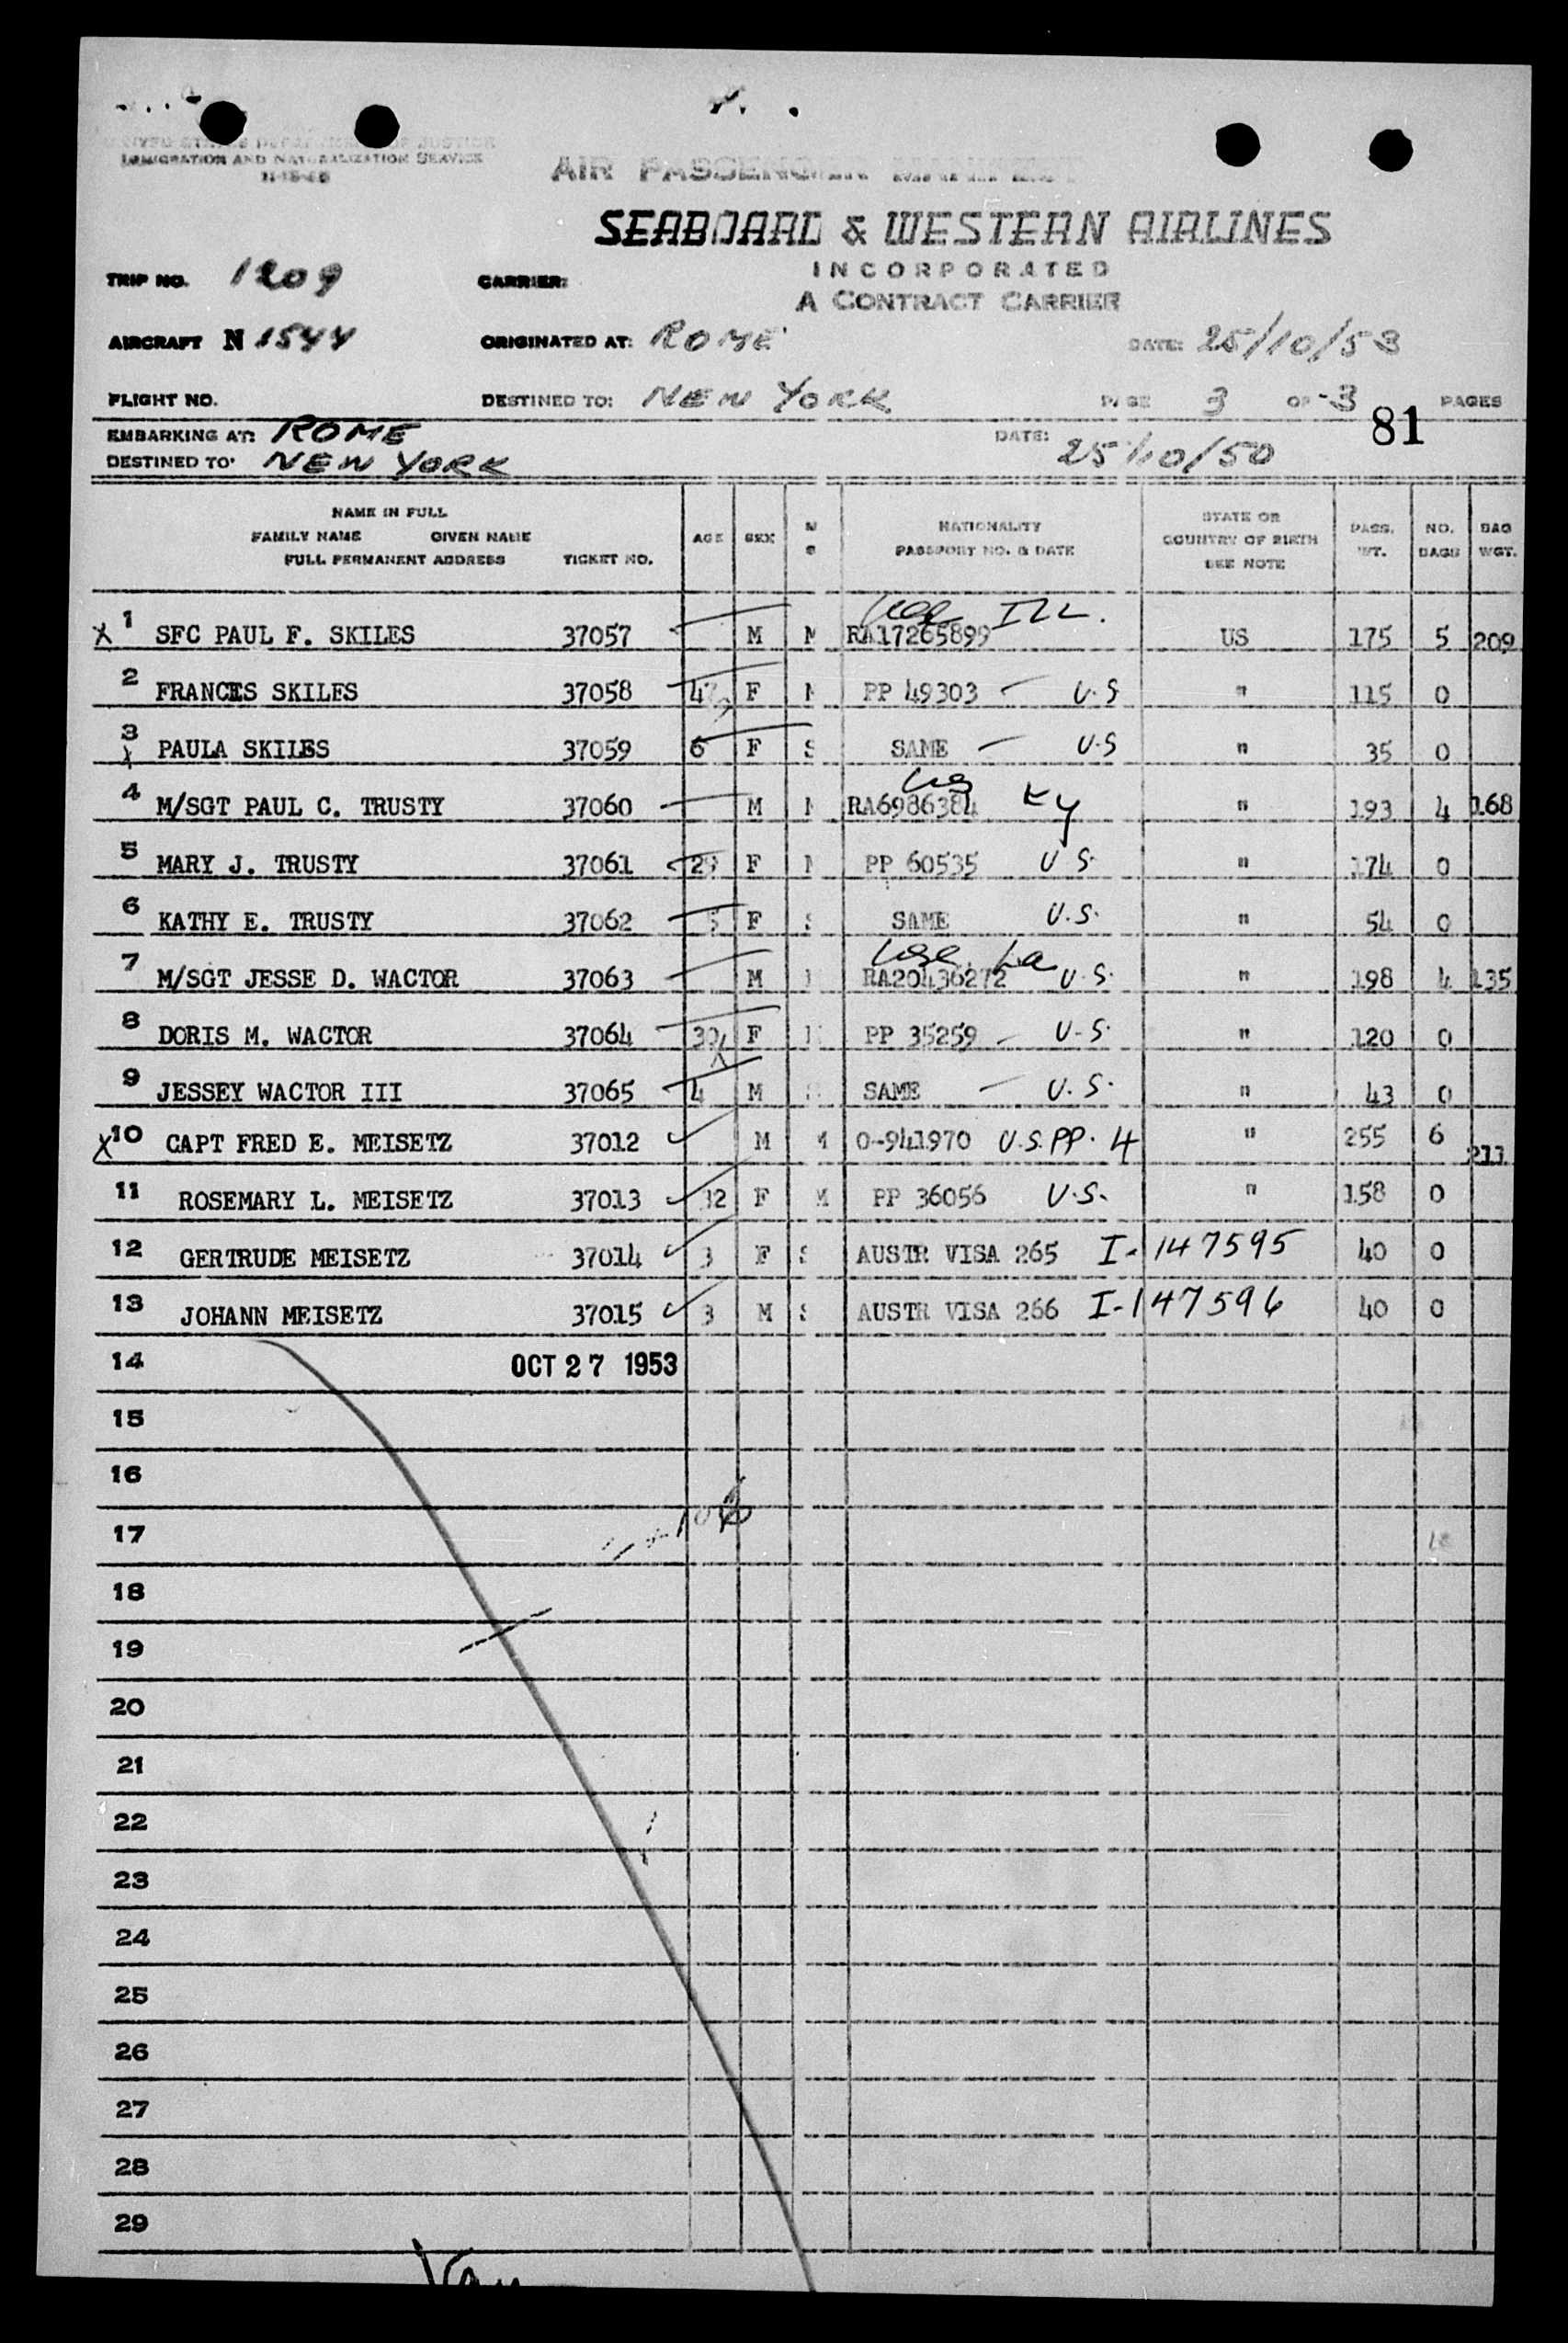 UNITED STATES DEPARTMENT OF JUSTICE
IMMIGRATION AND NATURALIZATION SERVICE
11-15-46
AIR PASSENGER MANIFEST
SEABOARD & WESTERN AIRLINES
INCORPORATED
A CONTRACT CARRIER
TRIP NO. 1209 CARRIER:
AIRCRAFT N 1544 ORIGINATED AT: ROME DATE: 25/10/53
FLIGHT NO. DESTINED TO: NEW YORK PAGE 3 OF 3 PAGES
81
EMBARKING AT: ROME DATE: 25/10/50
DESTINED TO: NEW YORK
NAME IN FULL
FAMILY NAME GIVEN NAME
FULL PERMANENT ADDRESS TICKET NO. AGE SEX M S NATIONALITY PASSPORT NO. & DATE STATE OR COUNTRY OF BIRTH SEE NOTE PASS. WT. NO. BAGS BAG WGT.
ILL.
X 1 SFC PAUL F. SKILES 37057 M M RA17265899 US 175 5 209
2 FRANCES SKILES 37058 F M PP 49303 U.S " 115 0
3 PAULA SKILES 37059 6 F S SAME U.S " 35 0
4 M/SGT PAUL C. TRUSTY 37060 M M RA6986384 Ky " 193 4 168
5 MARY J. TRUSTY 37061 29 F M PP 60535 U.S. " 174 0
6 KATHY E. TRUSTY 37062 5 F S SAME U.S. " 54 0
La
7 M/SGT JESSE D. WACTOR 37063 M M RA20436272 U.S. " 198 4 135
8 DORIS M. WACTOR 37064 F M PP 35259 U.S. " 120 0
9 JESSEY WACTOR III 37065 4 M S SAME U.S. " 43 0
X 10 CAPT FRED E. MEISETZ 37012 M M O-941970 U.S.PP. 4 " 255 6 211
11 ROSEMARY L. MEISETZ 37013 32 F M PP 36056 U.S. " 158 0
12 GERTRUDE MEISETZ 37014 3 F S AUSTR VISA 265 I-147595 40 0
13 JOHANN MEISETZ 37015 3 M S AUSTR VISA 266 I-147596 40 0
14 OCT 27 1953
15
16
17
18
19
20
21
22
23
24
25
26
27
28
29